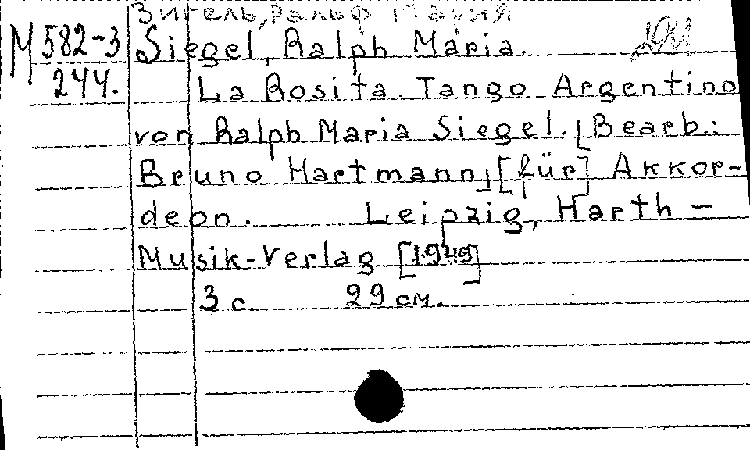 Зигель, Ральф Мария
М 582-3 Siegel, Ralph Maria.
244. La Rosita. Tango Argentino
von Ralph Maria Siegel. [Bearb.:
Bruno Hartmann] [für] Akkor-
deon. Leipzig, Harth-
Musik-Verlag [1949]
3 с. 29 см.